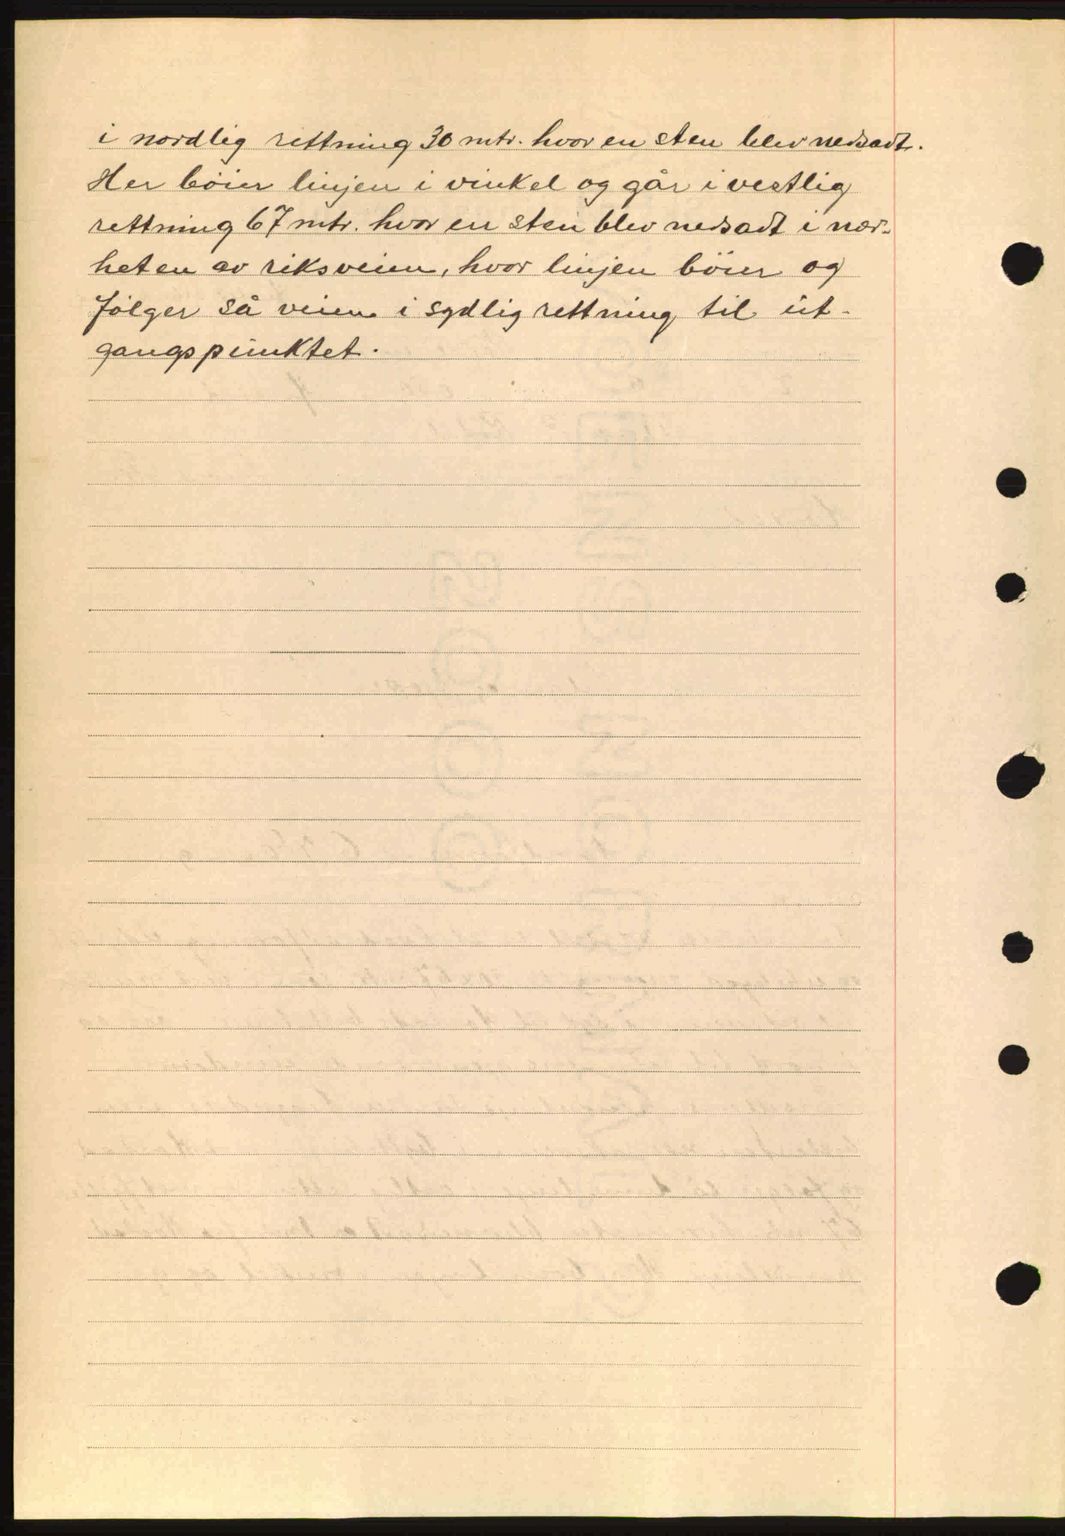 i nordlig rettning 30 mtr. hvor en sten blev nedsadt.
Her böier linjen i vinkel og går i vestlig
rettning 67 mtr. hvor en sten blev nedsadt i nær-
heten av riksveien, hvor linjen böier og
følger så veien i sydlig rettning til ut-
gangspunktet.